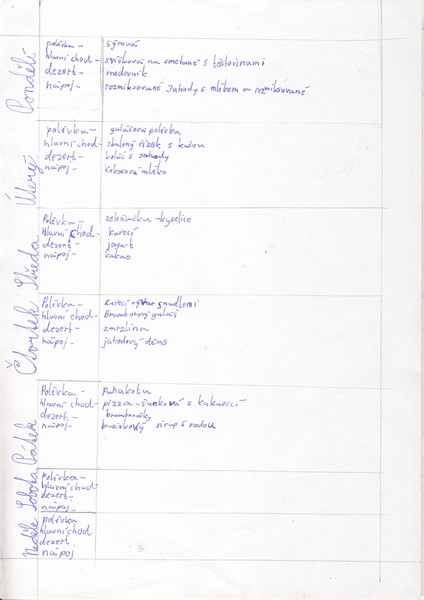 Pondělí
polévka - sýrová
hlavní chod - svíčková na smetaně s těstovinami
dezert - medovník
nápoj - rozmixované Jahody s mlékem rozmixované
Úterý
polévka - gulášová polévka
hlavní chod - smažený řízek s kašou
dezert - koláč s jahody
nápoj - kokosové mléko
Středa
Polévka - zelešnika - kyselice
Hlavní chod - kuřecí
dezert - jogurt
nápoj - kakao
Čtvrtek
Polévka - kuřecí vývar s nudlemi
hlavní chod - Bramborový guláš
dezert - zmrzlina
nápoj - jahodový džus
Pátek
Polévka -
hlavní chod - pizza - šunková s kukuřicí
dezert - bramborčíky
nápoj - brusinkový sirup s vodou
Sobota
polévka -
hlavní chod -
dezert -
nápoj -
Neděle
polévka
hlavní chod
dezert
nápoj